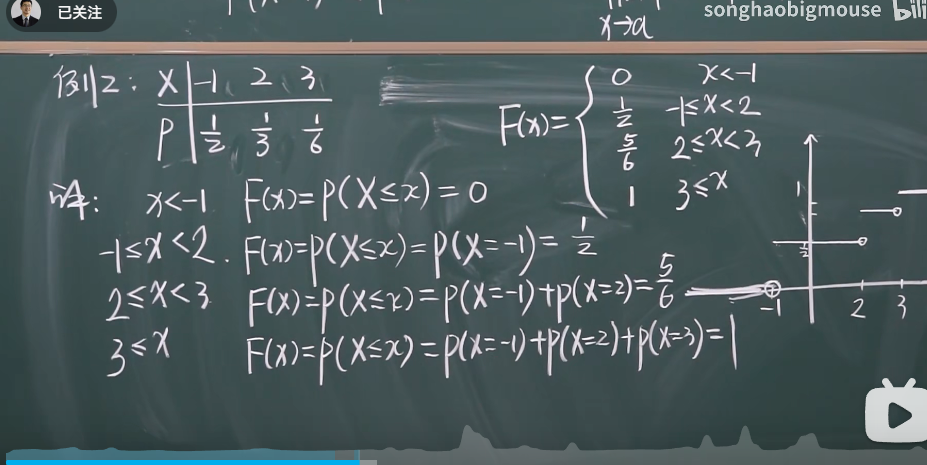 已关注
songhaobigmouse bili
x→a
例2: X -1 2 3
P 1/2 1/3 1/6
F(x)= { 0 x<-1
1/2 -1≤x<2
5/6 2≤x<3
1 3≤x
解: x<-1 F(x)=P(X≤x)=0
-1≤x<2. F(x)=P(X≤x)=P(X=-1)=1/2
2≤x<3 F(x)=P(X≤x)=P(X=-1)+P(X=2)=5/6
3≤x F(x)=P(X≤x)=P(X=-1)+P(X=2)+P(X=3)=1
1
1/2
-1 2 3